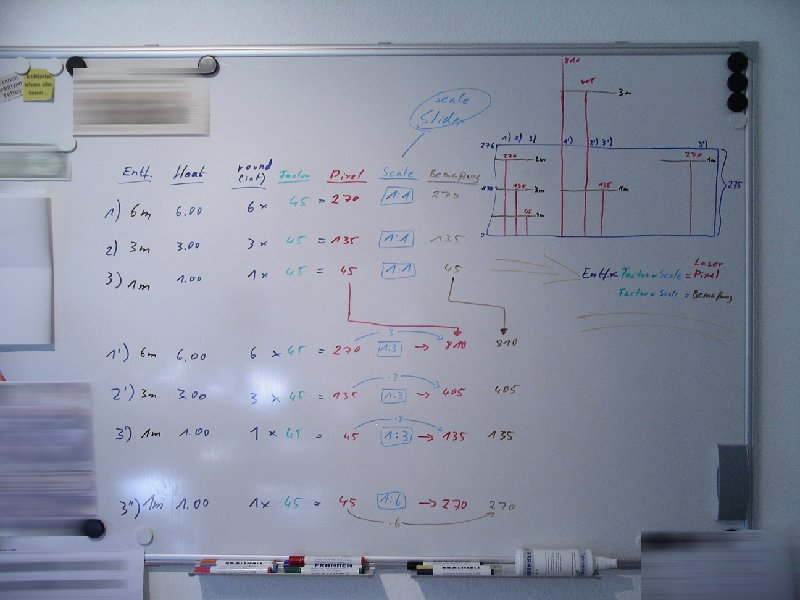 Scale
Slider
Entf. Heat round (int) Factor Pixel Scale Bemaßung
1) 6m 6.00 6 x 45 = 270 1:1 270
2) 3m 3.00 3 x 45 = 135 1:1 135
3) 1m 1.00 1 x 45 = 45 1:1 45
1') 6m 6.00 6 x 45 = 270 1:3 → 810 810
·3
2') 3m 3.00 3 x 45 = 135 1:3 → 405 405
·3
3') 1m 1.00 1 x 45 = 45 1:3 → 135 135
·3
3") 1m 1.00 1 x 45 = 45 1:6 → 270 270
·6
810
405
3m
276 1) 2) 3) 1') 2') 3') 3")
270 6m 270 1m
135 3m 135 1m
45 1m
275
Laser
Entf. x Factor x Scale = Pixel
Factor x Scale = Bemaßung
FRANKEN